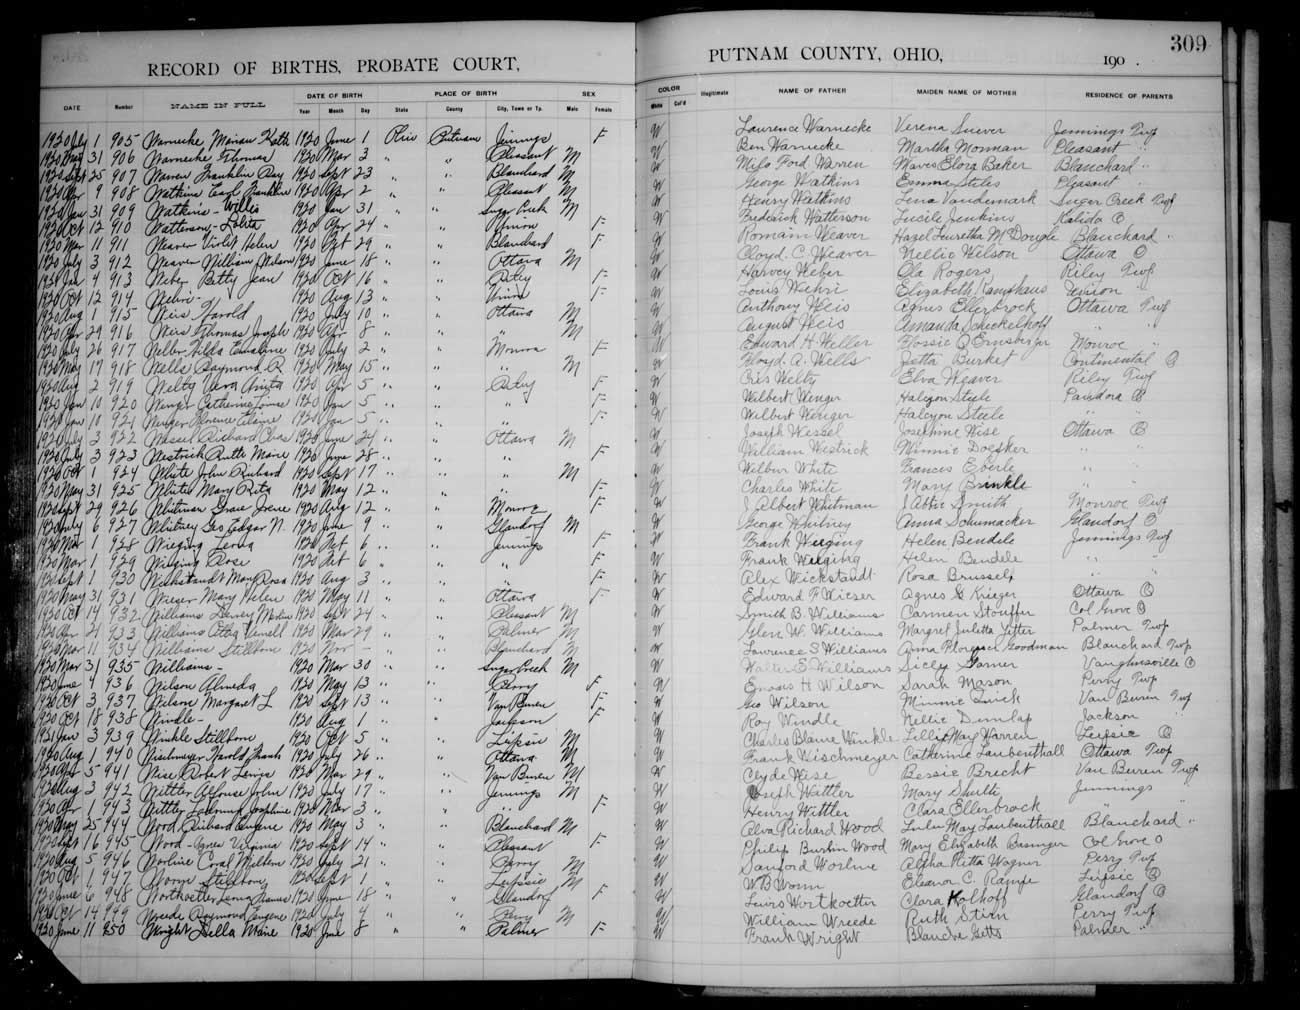 RECORD OF BIRTHS, PROBATE COURT, PUTNAM COUNTY, OHIO, 190 . 309
DATE Number NAME IN FULL DATE OF BIRTH PLACE OF BIRTH SEX COLOR Illegitimate NAME OF FATHER MAIDEN NAME OF MOTHER RESIDENCE OF PARENTS
Year Month Day State County City, Town or Tp. Male Female White Col'd
1920 July 1 905 Warnecke, Miriam Kath 1920 June 1 Ohio Putnam Jennings F W Laurence Warnecke Verena Suever Jennings Twp
1920 31 906 Warnecke Thomas 1920 Mar 3 " " Pleasant M W Ben Warnecke Martha Morman Pleasant "
1920 Sept 25 907 Warren Franklin Ray 1920 Sept 23 " " Blanchard M W Milo Ford Warren Maves Elora Baker Blanchard "
1920 Apr 9 908 Watkins Earl Franklin 1920 Apr 2 " " Pleasant M W George Watkins Emma Stiles Pleasant "
1920 Jan 31 909 Watkins - Willis 1920 Jan 31 " " Sugar Creek M W Henry Watkins Lena Vandemark Sugar Creek Twp
1920 Oct 12 910 Watterson - Lolita 1920 Apr 24 " " Union F W Frederick Watterson Lucile Jenkins Kalida O
1920 Mar 11 911 Weaver Violet Helen 1920 29 " " Blanchard F W Romain Weaver Hazel Luretha McDougle Blanchard "
1920 July 3 912 Weaver William Nelson 1920 June 18 " " Ottawa M W Cloyd. C. Weaver Nellie Wilson Ottawa O
Jan 4 913 Weber Betty Jean 1920 Oct 16 " " Riley F W Harvey Weber Ola Rogers Riley Twp
1920 Oct 12 914 1920 Aug 13 " " Union F W Louis Elizabeth Kamphaus Union "
1920 Aug 1 915 Weis Harold 1920 July 10 " " Ottawa M W Anthony Weis Agnes Ellerbrock Ottawa Twp
1920 Apr 29 916 Weis Thomas Joseph 1920 Apr 8 " " " M W August Weis Amanda Schickelhoff " "
1920 July 26 917 Weller Hilda 1920 July 2 " " Monroe F W Edward H. Weller Flossie Q Ornsberger Monroe "
1920 May 17 918 Wells Raymond R 1920 May 15 " " " M W Floyd. A. Wells Jetta Burket Continental O
1920 Aug 2 919 Welty Vera Anita 1920 Apr 5 " " Riley F W Cris Welty Elva Weaver Riley Twp
1920 Jan 10 920 Wenger Catherine Louise 1920 Jan 5 " " " F W Wilbert Wenger Halcyon Steele Pandora O
1920 Jan 10 921 Wenger Florence Elaine 1920 Jan 5 " " " F W Wilbert Wenger Halcyon Steele " "
1920 July 3 922 Wessel Richard Chas 1920 June 24 " " Ottawa M W Joseph Wessel Josephine Wise Ottawa O
1920 July 3 923 Westrick Ruth Marie 1920 June 28 " " " F W William Westrick Minnie Doesker " "
1920 Oct 1 924 White John Richard 1920 Sept 17 " " " M W Wilbur White Frances Eberle " "
1920 May 31 925 White Mary Rita 1920 May 12 " " " F W Charles White Mary Brinkle " "
1920 Sept 29 926 Whitman Grace Irene 1920 Aug 12 " " Monroe F W J Elbert Whitman J Abbie Smith Monroe Twp
1920 July 6 927 Whitney Geo Edgar N. 1920 June 9 " " Glandorf M W George Whitney Anna Schumacker Glandorf O
1920 Mar 1 928 Wieging Leona 1920 Oct 6 " " Jennings F W Frank Wieging Helen Bendele Jennings Twp
1920 Mar 1 929 Wieging Rose 1920 Oct 6 " " " F W Frank Wieging Helen Bendele " "
1920 Sept 1 930 Wickstandt Mary Rosa 1920 Aug 3 " " " F W Alex Wickstandt Rosa Brussel " "
1920 May 31 931 Wieser Mary Helen 1920 May 11 " " Ottawa F W Edward F Wieser Agnes G Krieger Ottawa O
1920 Oct 14 932 Williams Dewey 1920 Sept 24 " " Pleasant M W Smith B. Williams Carmen Stouffer Col Grove O
1920 Apr 21 933 Williams 1920 Mar 29 " " Palmer M W Glen W. Williams Margret Juletta Palmer Twp
1920 Mar 11 934 Williams Stillborn 1920 Nov - " " Blanchard M W Lawrence S Williams Anna Florence Goodman Blanchard Twp
1920 Mar 31 935 Williams - 1920 Mar 30 " " Sugar Creek M W Walter S Williams Sicly Garner Vaughnsville O
1920 June 4 936 Wilson Almeda 1920 May 13 " " Perry F W Enoas H Wilson Sarah Mason Perry Twp
1920 Oct 3 937 Wilson Margaret L 1920 Sept 13 " " Van Buren F W Geo Wilson Minnie Van Buren Twp
1920 Oct 18 938 Windle - 1920 Aug 1 " " Jackson F W Roy Windle Nellie Dunlap Jackson "
1921 Jan 3 939 Winkle Stillborn 1920 Oct 5 " " Leipsic M W Charles Blaine Winkle Lillie May Warren Leipsic O
1920 Aug 1 940 Wischmeyer Harold Frank 1920 July 26 " " Ottawa M W Frank Wischmeyer Catherine Laubenthall Ottawa Twp
1920 Apr 5 941 Wise Robert Lewis 1920 Mar 29 " " Van Buren M W Clyde Wise Bessie Brecht Van Buren Twp
1920 Aug 3 942 Wittler Alfonse John 1920 July 17 " " Jennings M W Joseph Wittler Mary Jennings "
1920 Apr 1 943 Wittler Josephine 1920 Mar 3 " " " F W Henry Wittler Clara Ellerbrock " "
1920 May 25 944 Wood Richard Eugene 1920 May 3 " " Blanchard M W Alva Richard Wood Lulu May Laubenthall Blanchard "
1920 Sept 16 945 Wood - Agnes Virginia 1920 Sept 14 " " Pleasant F W Philip Burtin Wood Mary Elizabeth Basinger Col Grove O
1920 Aug 5 946 Worline Coral 1920 July 21 " " Perry M W Sanford Worline Altha Ritta Wagner Perry Twp
1920 Oct 1 947 Worm Stillborn 1920 Sept 1 " " Leipsic M W W B Worm Eleanor C. Rampe Leipsic O
1920 June 6 948 Wortkoetter Leona 1920 June 18 " " Glandorf F W Lewis Wortkoetter Clara Kolhoff Glandorf O
1920 Oct 14 949 Wreede Raymond Eugene 1920 July 4 " " Perry M W William Wreede Ruth Stirn Perry Twp
1920 June 11 950 Wright Della Marie 1920 June 8 " " Palmer F W Frank Wright Blanche Getts Palmer "